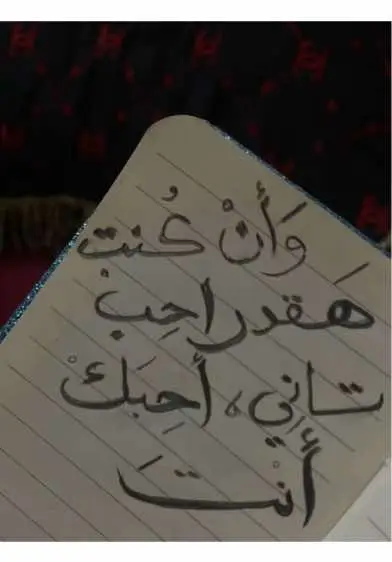 وَأَنْ كُنت
هَقدر احِبْ
تاني، أحِبَكْ
أنْتَ